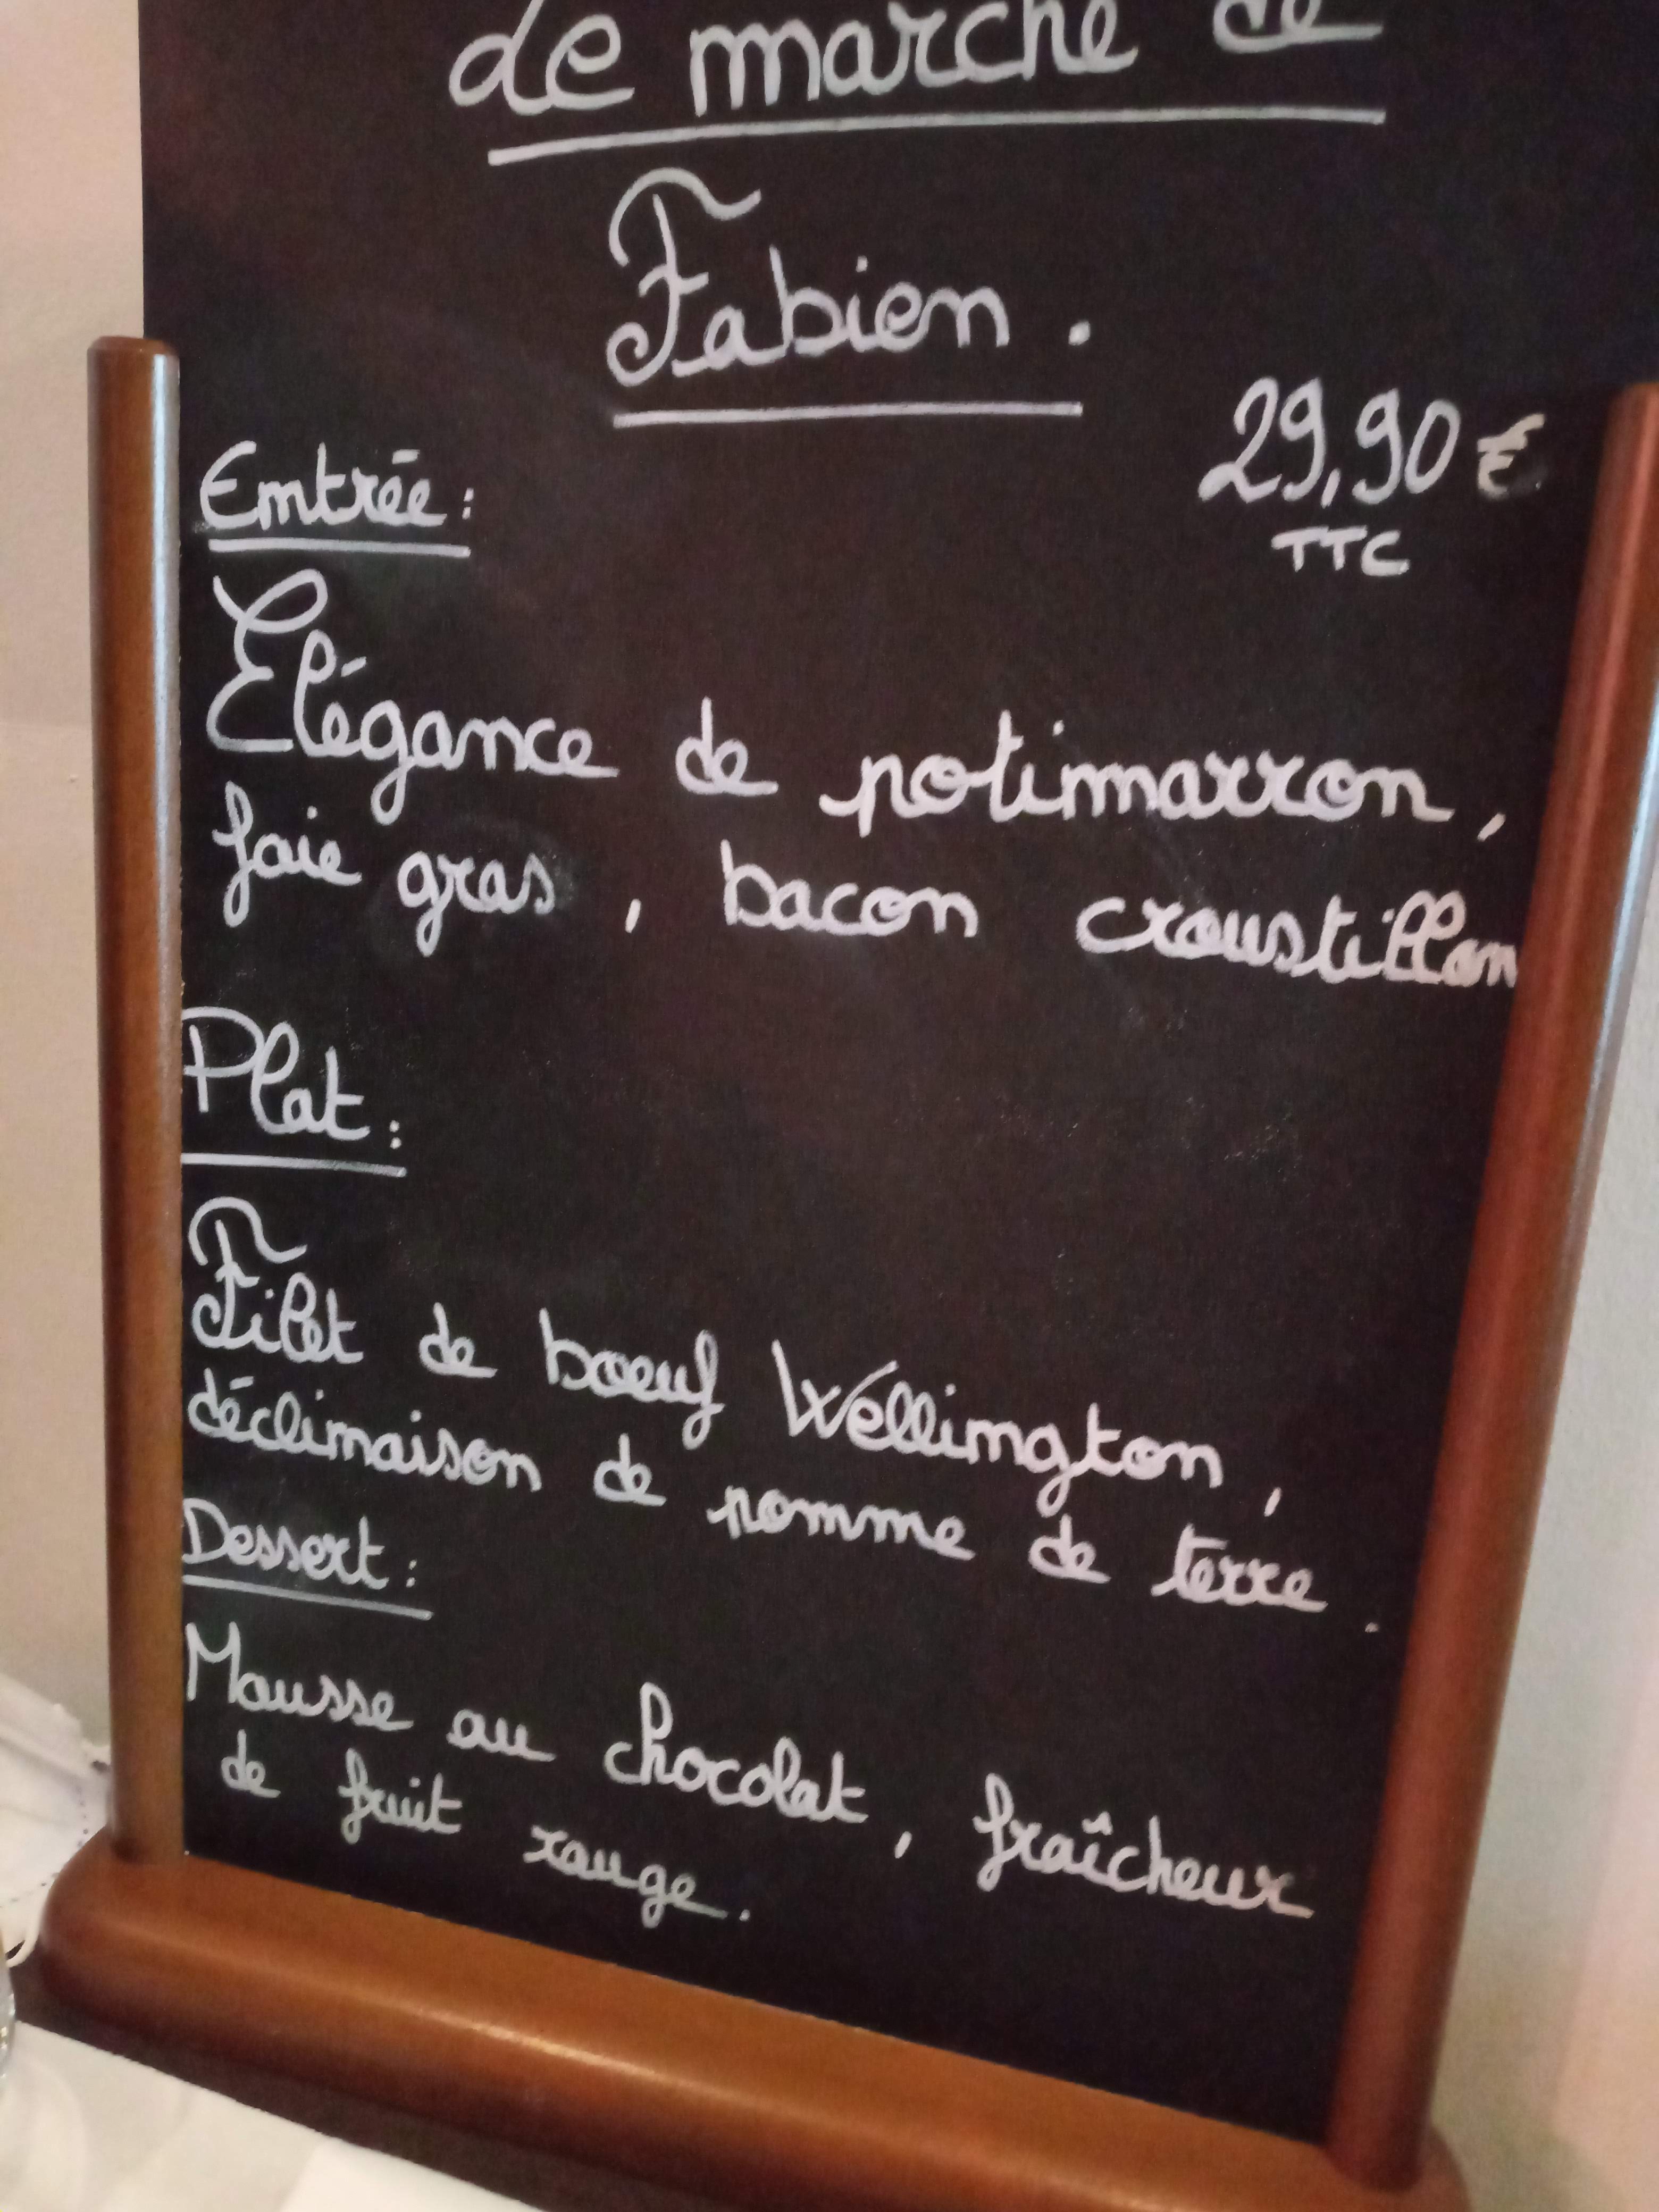 de marché de
Fabien.
29,90 €
TTC
Entrée:
Élégance de potimarron,
foie gras, bacon croustillan
Plat:
Filet de boeuf Wellington,
déclinaison de pomme de terre.
Dessert:
Mousse au chocolat, fraîcheur
de fruit rouge.